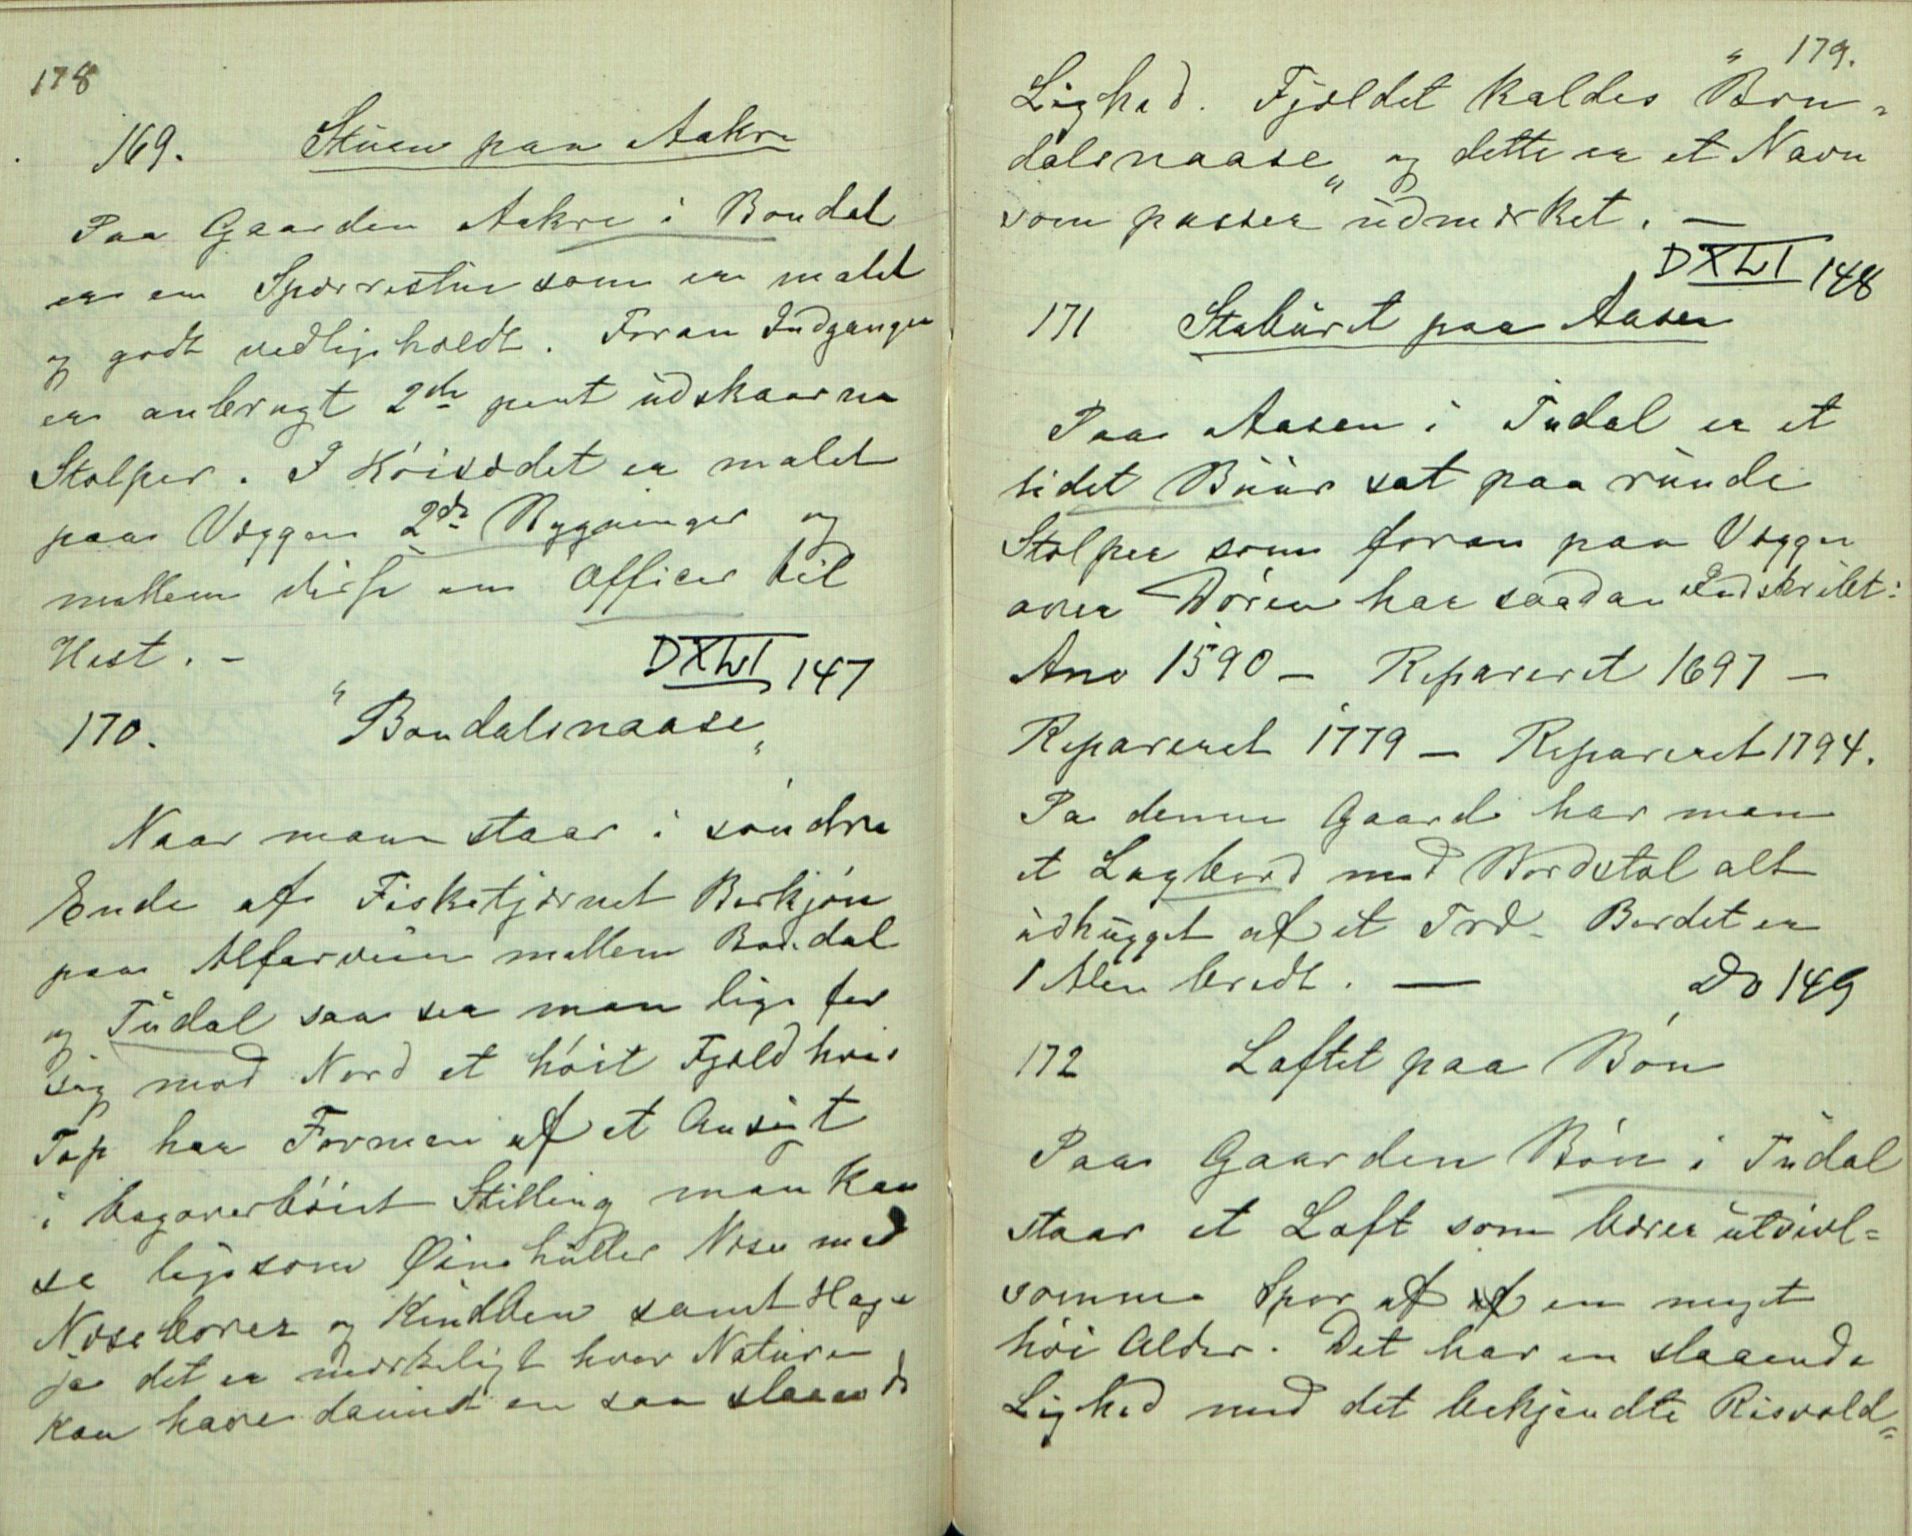 178
169. Stuen paa Aakre
Paa Gaarden Aakre i Bondal
er en Sperrestue som er malet
og godt vedligeholdt. Foran Indgangen
er anbragt 2de pent udskaarne
Stolper. I Höisædet er malet
paa Væggen 2de Bygninger og
mellem disse en Officer til
Hest. –
DXLI 147
170. "Bondalsnaase„
Naar man staar i söndre
Ende af Fisketjærnet Berkjön
paa Alfarveien mellem Bondal
og Tudal saa ser man lige for
sig mod Nord et höit Fjeld hvis
Top har Formen af et Ansigt
i bagoverböiet Stilling man kan
se ligesom Øinehuller Næse med
Næseborer og Kindben samt Hage
ja det er merkeligt hvor Naturen
kan have dannet en saa slaaende
179.
Lighed. Fjeldet kaldes "Bon=
dalsnaase„ og dette er et Navn
som passer udmerket. —
DXLI 148
171 Staburet paa Aasen
Paa Aasen i Tudal er et
lidet Buur sat paa runde
Stolper som foran paa Vægger
over Dören har saadan Indskribt:
Ano 1590 – Repareret 1697 –
Repareret 1779 – Repareret 1794.
Pa denne Gaard har man
et Lagbord med Bordstol alt
udhugget af et Træ. Bordet er
1 Alen bredt. —
Do 149
172 Loftet paa Bön
Paa Gaarden Bön i Tudal
staar et Loft som bærer utvivl=
somme Spor af af en meget
höi Alder. Det har en slaaende
Lighed med det bekjendte Risvold=